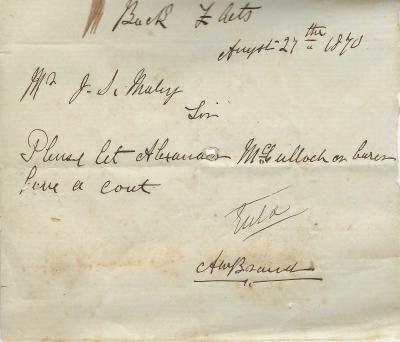 Back Z Acts
August 27th 1870
Mr J. S. Maley
Sir
Please let Alexander McCulloch or barer
have a coat
AWBrand